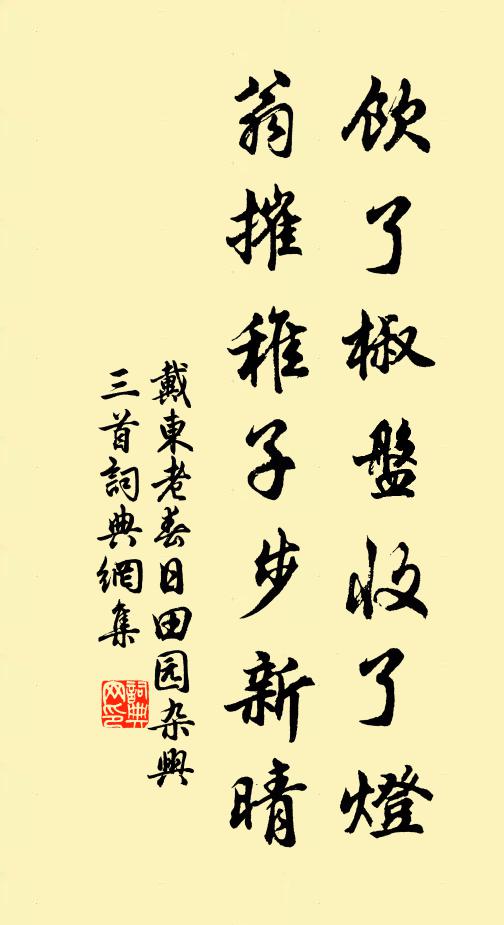 飲了椒盤收了燈
翁摧稚子步新晴
戴東老春日田园杂興
三首詞典網集
詞典网印